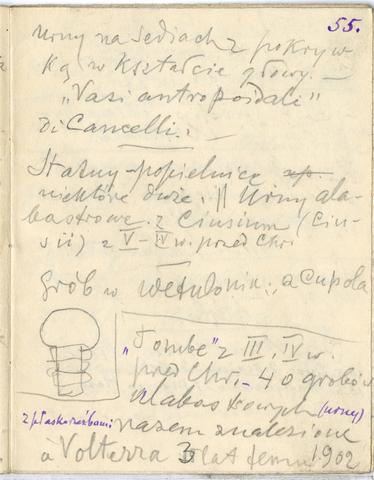 55.
Urny na sediach z pokryw
ką w kształcie głowy. —
„Vasi antropoidali"
Di Cancelli.
Statuy-popielnice
niektóre duże. || Urny ala-
bastrowe z Clusium (Clu-
sii) z V-IV w. przed Chr.
Grób w Wetulonia: a Cupola
„Tombe" z III, IV w.
przed Chr. – 40 grobów
alabastrowych (urny)
z płaskorzeźbami razem znalezione
à Volterra 3 lat temu 1902